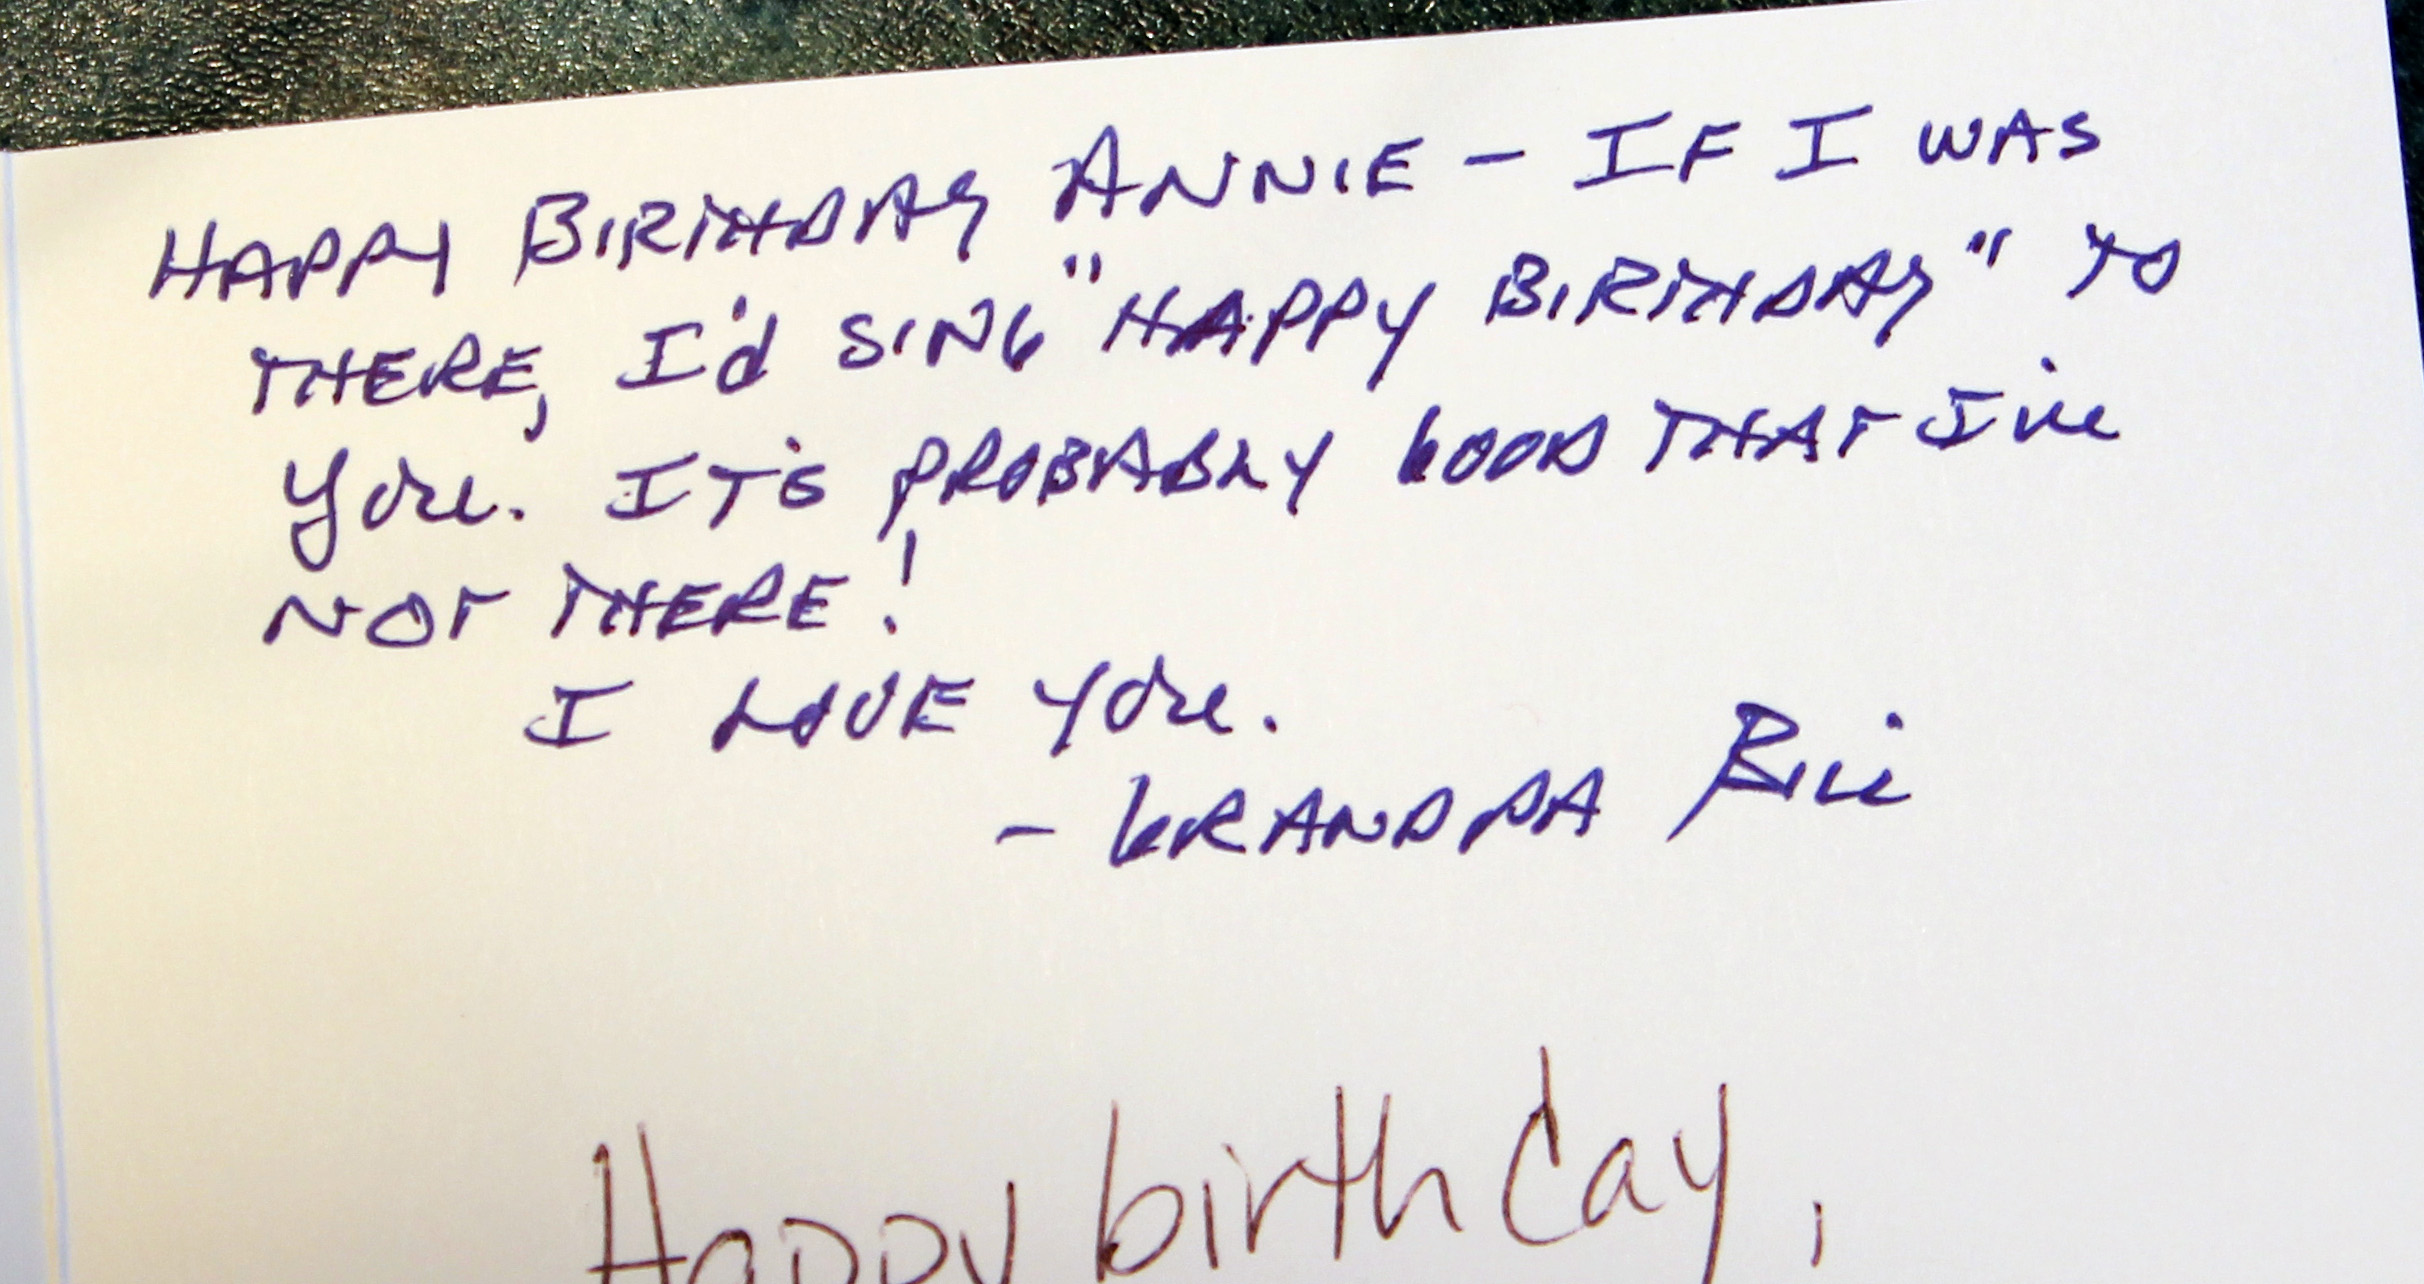 HAPPY BIRTHDAY ANNIE - IF I WAS
THERE, I'd SING "HAPPY BIRTHDAY" TO
you. IT'S PROBABLY GOOD THAT I'm
NOT THERE!
I LOVE you.
- GRANDPA Bill
Happy birthday,